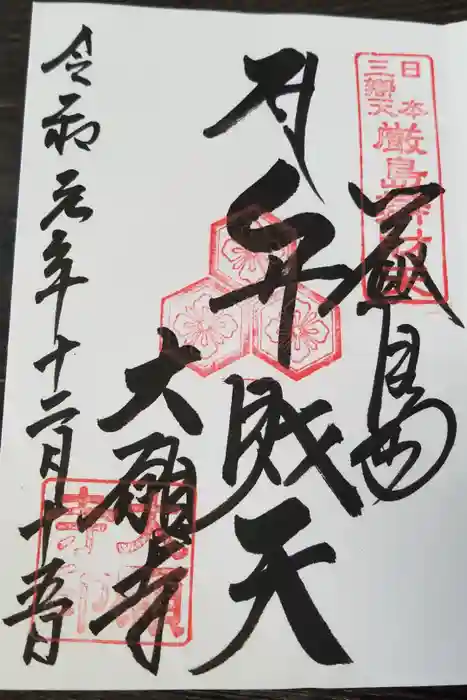 日本
三弁天
厳島弁財天
厳島
弁財天
大願寺
大願寺印
令和元年十二月十五日